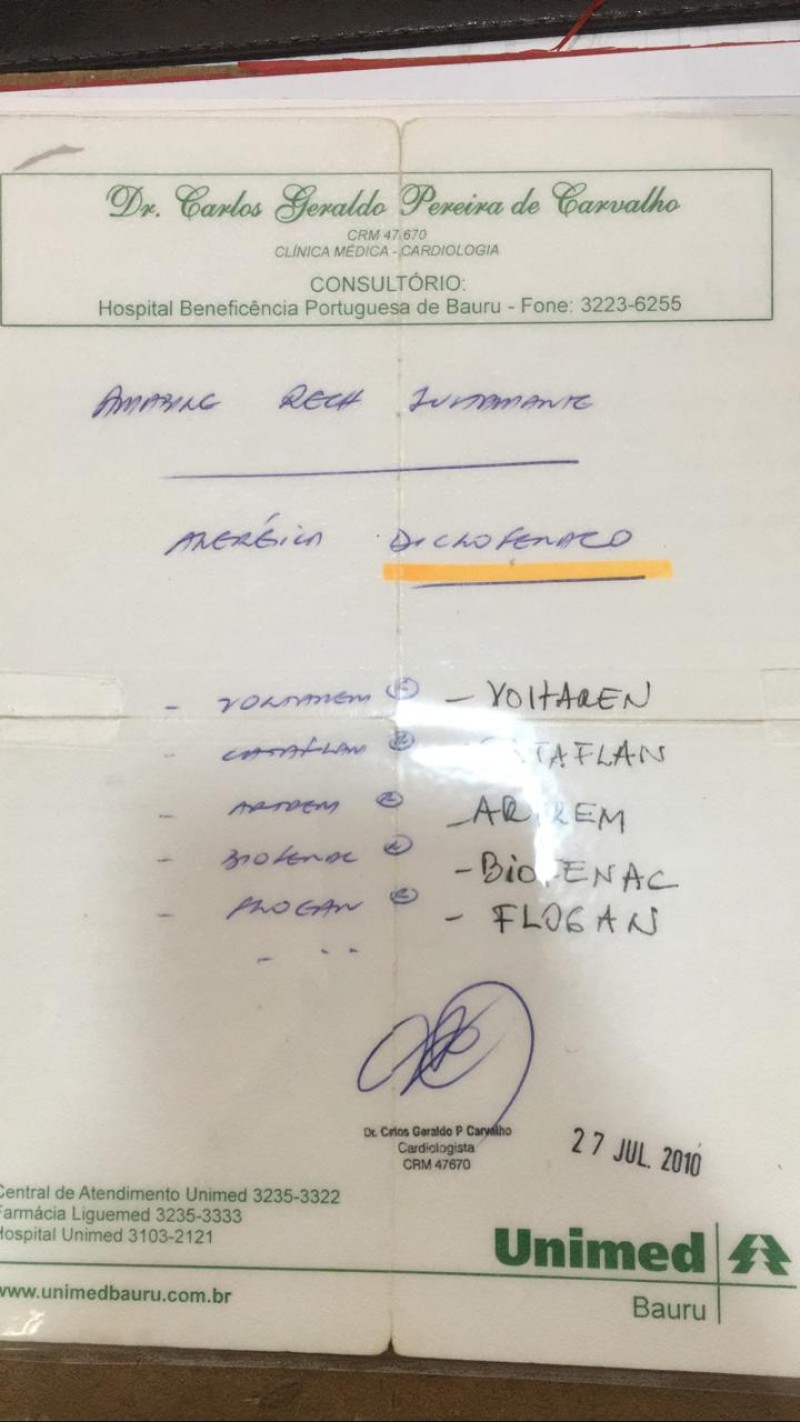 Dr. Carlos Geraldo Pereira de Carvalho
CRM 47.670
CLÍNICA MÉDICA - CARDIOLOGIA
CONSULTÓRIO:
Hospital Beneficência Portuguesa de Bauru - Fone: 3223-6255
RECH
ALÉRGICA DICLOFENACO
- VOLTAREM ® - VOLTAREN
- CATAFLAM ®
- ARTREM ®
- BIOFENAC ® - BIOFENAC
- FLOGAN ® - FLOGAN
Dr. Carlos Geraldo P Carvalho
Cardiologista
CRM 47670
27 JUL. 2010
Central de Atendimento Unimed 3235-3322
Farmácia Liguemed 3235-3333
Hospital Unimed 3103-2121
www.unimedbauru.com.br
Unimed
Bauru